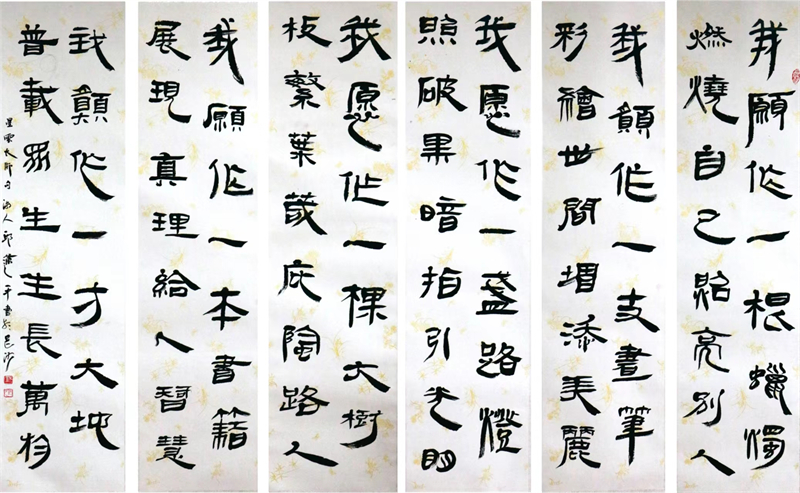 我願作一根蠟燭
燃燒自己照亮別人
我願作一支畫筆
彩繪世間增添美麗
我愿作一盞路燈
照破黑暗指引光明
我愿作一棵大樹
枝繁葉茂庇蔭路人
我願作一本書籍
展現真理給人智慧
我願作一方大地
普載眾生生長萬物
星雲大師句